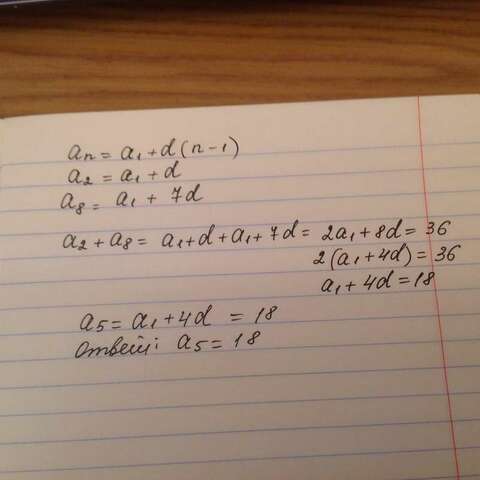 an = a1 + d(n-1)
a2 = a1 + d
a8 = a1 + 7d
a2 + a8 = a1 + d + a1 + 7d = 2a1 + 8d = 36
2(a1 + 4d) = 36
a1 + 4d = 18
a5 = a1 + 4d = 18
Ответ: a5 = 18